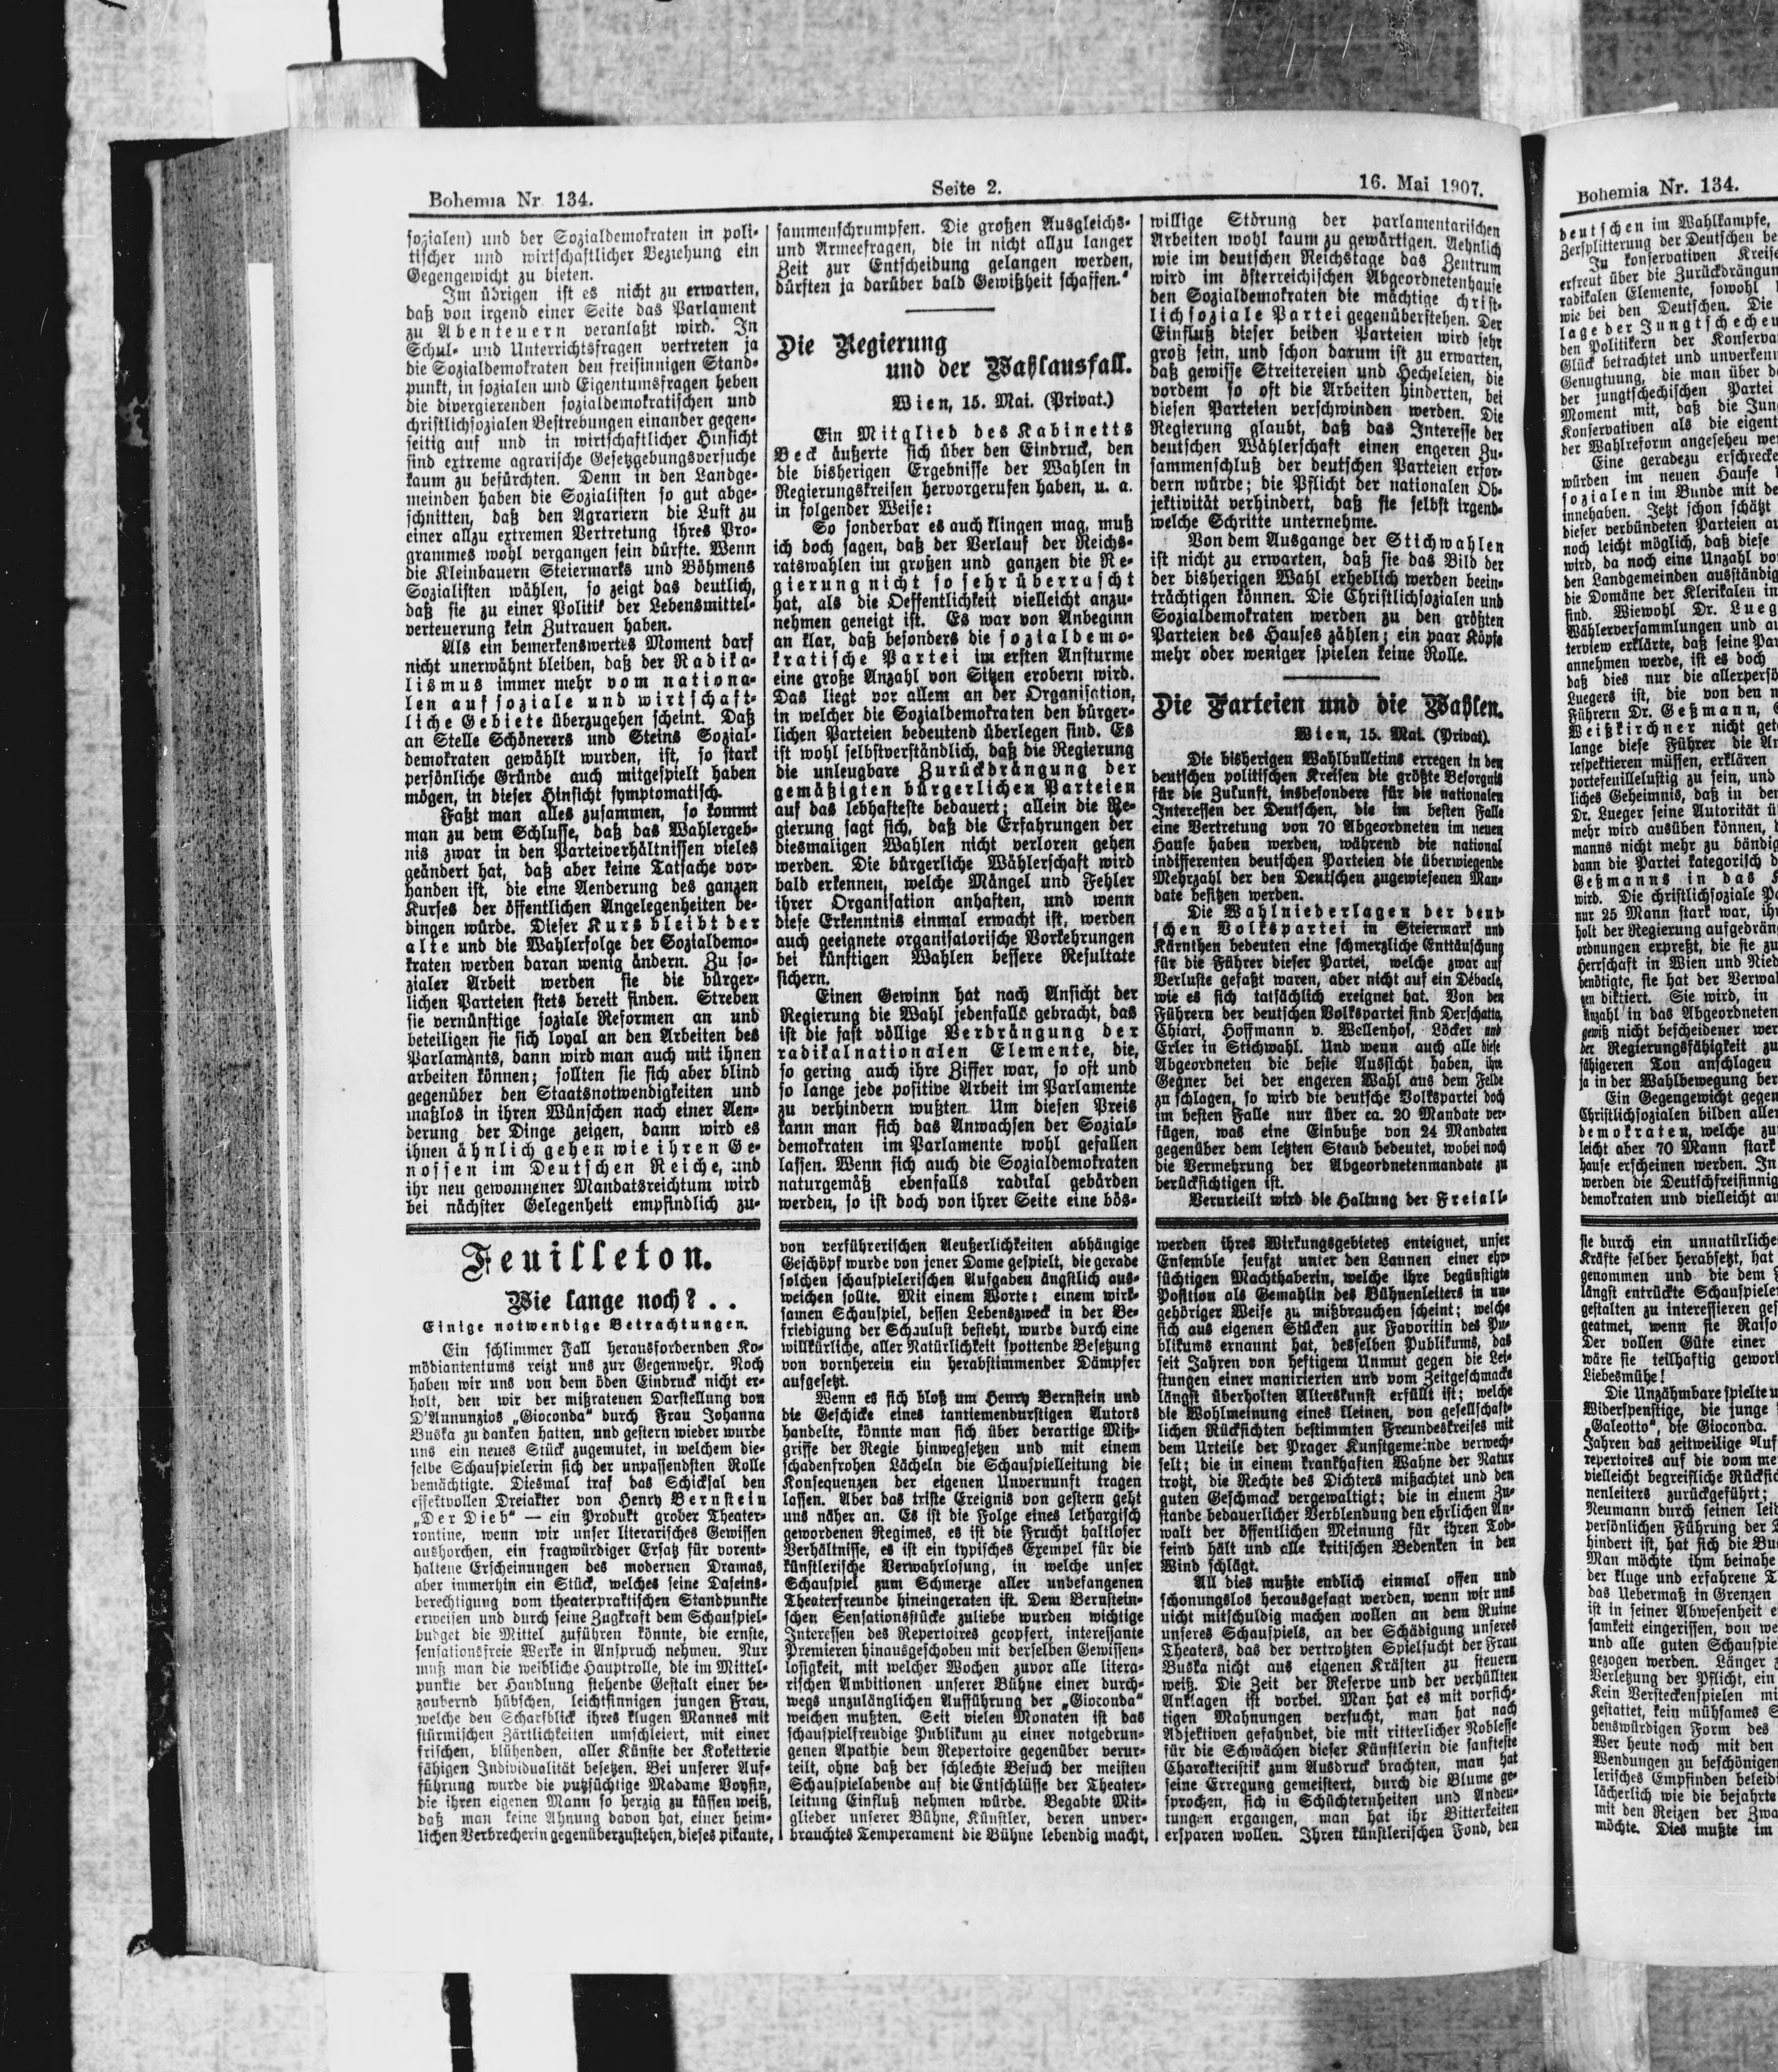 Bohemia Nr. 134.
Seite 2.
16. Mai 1907.
sozialen) und der Sozialdemokraten in poli-
tischer und wirtschaftlicher Beziehung ein
Gegengewicht zu bieten.
Im übrigen ist es nicht zu erwarten,
daß von irgend einer Seite das Parlament
zu Abenteuern veranlaßt wird. In
Schul- und Unterrichtsfragen vertreten ja
die Sozialdemokraten den freisinnigen Stand-
punkt, in sozialen und Eigentumsfragen heben
die divergierenden sozialdemokratischen und
christlichsozialen Bestrebungen einander gegen-
seitig auf und in wirtschaftlicher Hinsicht
sind extreme agrarische Gesetzgebungsversuche
kaum zu befürchten. Denn in den Landge-
meinden haben die Sozialisten so gut abge-
schnitten, daß den Agrariern die Lust zu
einer allzu extremen Vertretung ihres Pro-
grammes wohl vergangen sein dürfte. Wenn
die Kleinbauern Steiermarks und Böhmens
Sozialisten wählen, so zeigt das deutlich,
daß sie zu einer Politik der Lebensmittel-
verteuerung kein Zutrauen haben.
Als ein bemerkenswertes Moment darf
nicht unerwähnt bleiben, daß der Radika-
lismus immer mehr vom nationa-
len auf soziale und wirtschaft-
liche Gebiete überzugehen scheint. Daß
an Stelle Schönerers und Steins Sozial-
demokraten gewählt wurden, ist, so stark
persönliche Gründe auch mitgespielt haben
mögen, in dieser Hinsicht symptomatisch.
Faßt man alles zusammen, so kommt
man zu dem Schlusse, daß das Wahlergeb-
nis zwar in den Parteiverhältnissen vieles
geändert hat, daß aber keine Tatsache vor-
handen ist, die eine Aenderung des ganzen
Kurses der öffentlichen Angelegenheiten be-
dingen würde. Dieser Kurs bleibt der
alte und die Wahlerfolge der Sozialdemo-
kraten werden daran wenig ändern. Zu so-
zialer Arbeit werden sie die bürger-
lichen Parteien stets bereit finden. Streben
sie vernünftige soziale Reformen an und
beteiligen sie sich loyal an den Arbeiten des
Parlaments, dann wird man auch mit ihnen
arbeiten können; sollten sie sich aber blind
gegenüber den Staatsnotwendigkeiten und
maßlos in ihren Wünschen nach einer Aen-
derung der Dinge zeigen, dann wird es
ihnen ähnlich gehen wie ihren Ge-
nossen im Deutschen Reiche, und
ihr neu gewonnener Mandatsreichtum wird
bei nächster Gelegenheit empfindlich zu-
sammenschrumpfen. Die großen Ausgleichs-
und Armeefragen, die in nicht allzu langer
Zeit zur Entscheidung gelangen werden,
dürften ja darüber bald Gewißheit schaffen."
Die Regierung
und der Wahlausfall.
Wien, 15. Mai. (Privat.)
Ein Mitglied des Kabinetts
Beck äußerte sich über den Eindruck, den
die bisherigen Ergebnisse der Wahlen in
Regierungskreisen hervorgerufen haben, u. a.
in folgender Weise:
So sonderbar es auch klingen mag, muß
ich doch sagen, daß der Verlauf der Reichs-
ratswahlen im großen und ganzen die Re-
gierung nicht so sehr überrascht
hat, als die Oeffentlichkeit vielleicht anzu-
nehmen geneigt ist. Es war von Anbeginn
an klar, daß besonders die sozialdemo-
kratische Partei im ersten Ansturme
eine große Anzahl von Sitzen erobern wird.
Das liegt vor allem an der Organisation,
in welcher die Sozialdemokraten den bürger-
lichen Parteien bedeutend überlegen sind. Es
ist wohl selbstverständlich, daß die Regierung
die unleugbare Zurückdrängung der
gemäßigten bürgerlichen Parteien
auf das lebhafteste bedauert; allein die Re-
gierung sagt sich, daß die Erfahrungen der
diesmaligen Wahlen nicht verloren gehen
werden. Die bürgerliche Wählerschaft wird
bald erkennen, welche Mängel und Fehler
ihrer Organisation anhaften, und wenn
diese Erkenntnis einmal erwacht ist, werden
auch geeignete organisatorische Vorkehrungen
bei künftigen Wahlen bessere Resultate
sichern.
Einen Gewinn hat nach Ansicht der
Regierung die Wahl jedenfalls gebracht, das
ist die fast völlige Verdrängung der
radikalnationalen Elemente, die,
so gering auch ihre Ziffer war, so oft und
so lange jede positive Arbeit im Parlamente
zu verhindern wußten. Um diesen Preis
kann man sich das Anwachsen der Sozial-
demokraten im Parlamente wohl gefallen
lassen. Wenn sich auch die Sozialdemokraten
naturgemäß ebenfalls radikal gebärden
werden, so ist doch von ihrer Seite eine bös-
willige Störung der parlamentarischen
Arbeiten wohl kaum zu gewärtigen. Aehnlich
wie im deutschen Reichstage das Zentrum
wird im österreichischen Abgeordnetenhause
den Sozialdemokraten die mächtige christ-
lichsoziale Partei gegenüberstehen. Der
Einfluß dieser beiden Parteien wird sehr
groß sein, und schon darum ist zu erwarten,
daß gewisse Streitereien und Hecheleien, die
vordem so oft die Arbeiten hinderten, bei
diesen Parteien verschwinden werden. Die
Regierung glaubt, daß das Interesse der
deutschen Wählerschaft einen engeren Zu-
sammenschluß der deutschen Parteien erfor-
dern würde; die Pflicht der nationalen Ob-
jektivität verhindert, daß sie selbst irgend-
welche Schritte unternehme.
Von dem Ausgange der Stichwahlen
ist nicht zu erwarten, daß sie das Bild der
der bisherigen Wahl erheblich werden beein-
trächtigen können. Die Christlichsozialen und
Sozialdemokraten werden zu den größten
Parteien des Hauses zählen; ein paar Köpfe
mehr oder weniger spielen keine Rolle.
Die Parteien und die Wahlen.
Wien, 15. Mai. (Privat).
Die bisherigen Wahlbulletins erregen in den
deutschen politischen Kreisen die größte Besorgnis
für die Zukunft, insbesondere für die nationalen
Interessen der Deutschen, die im besten Falle
eine Vertretung von 70 Abgeordneten im neuen
Hause haben werden, während die national
indifferenten deutschen Parteien die überwiegende
Mehrzahl der den Deutschen zugewiesenen Man-
date besitzen werden.
Die Wahlniederlagen der deut-
schen Volkspartei in Steiermark und
Kärnthen bedeuten eine schmerzliche Enttäuschung
für die Führer dieser Partei, welche zwar auf
Verluste gefaßt waren, aber nicht auf ein Débacle,
wie es sich tatsächlich ereignet hat. Von den
Führern der deutschen Volkspartei sind Derschatta,
Chiari, Hoffmann v. Wellenhof, Löcker und
Erler in Stichwahl. Und wenn auch alle diese
Abgeordneten die beste Aussicht haben, ihre
Gegner bei der engeren Wahl aus dem Felde
zu schlagen, so wird die deutsche Volkspartei doch
im besten Falle nur über ca. 20 Mandate ver-
fügen, was eine Einbuße von 24 Mandaten
gegenüber dem letzten Stand bedeutet, wobei noch
die Vermehrung der Abgeordnetenmandate zu
berücksichtigen ist.
Verurteilt wird die Haltung der Freiall-
Feuilleton.
Wie lange noch? . .
Einige notwendige Betrachtungen.
Ein schlimmer Fall herausfordernden Ko-
mödiantentums reizt uns zur Gegenwehr. Noch
haben wir uns von dem öden Eindruck nicht er-
holt, den wir der mißratenen Darstellung von
D'Annunzios „Gioconda" durch Frau Johanna
Buska zu danken hatten, und gestern wieder wurde
uns ein neues Stück zugemutet, in welchem die-
selbe Schauspielerin sich der unpassendsten Rolle
bemächtigte. Diesmal traf das Schicksal den
effektvollen Dreiakter von Henry Bernstein
„Der Dieb" — ein Produkt grober Theater-
routine, wenn wir unser literarisches Gewissen
aushorchen, ein fragwürdiger Ersatz für vorent-
haltene Erscheinungen des modernen Dramas,
aber immerhin ein Stück, welches seine Daseins-
berechtigung vom theaterpraktischen Standpunkte
erweisen und durch seine Zugkraft dem Schauspiel-
budget die Mittel zuführen könnte, die ernste,
sensationsfreie Werke in Anspruch nehmen. Nur
muß man die weibliche Hauptrolle, die im Mittel-
punkte der Handlung stehende Gestalt einer be-
zaubernd hübschen, leichtsinnigen jungen Frau,
welche den Scharfblick ihres klugen Mannes mit
stürmischen Zärtlichkeiten umschleiert, mit einer
frischen, blühenden, aller Künste der Koketterie
fähigen Individualität besetzen. Bei unserer Auf-
führung wurde die putzsüchtige Madame Voysin,
die ihren eigenen Mann so herzig zu küssen weiß,
daß man keine Ahnung davon hat, einer heim-
lichen Verbrecherin gegenüberzustehen, dieses pikante,
von verführerischen Aeußerlichkeiten abhängige
Geschöpf wurde von jener Dame gespielt, die gerade
solchen schauspielerischen Aufgaben ängstlich aus-
weichen sollte. Mit einem Worte: einem wirk-
samen Schauspiel, dessen Lebenszweck in der Be-
friedigung der Schaulust besteht, wurde durch eine
willkürliche, aller Natürlichkeit spottende Besetzung
von vornherein ein herabstimmender Dämpfer
aufgesetzt.
Wenn es sich bloß um Henry Bernstein und
die Geschicke eines tantiemendurstigen Autors
handelte, könnte man sich über derartige Miß-
griffe der Regie hinwegsetzen und mit einem
schadenfrohen Lächeln die Schauspielleitung die
Konsequenzen der eigenen Unvernunft tragen
lassen. Aber das triste Ereignis von gestern geht
uns näher an. Es ist die Folge eines lethargisch
gewordenen Regimes, es ist die Frucht haltloser
Verhältnisse, es ist ein typisches Exempel für die
künstlerische Verwahrlosung, in welche unser
Schauspiel zum Schmerze aller unbefangenen
Theaterfreunde hineingeraten ist. Dem Bernstein-
schen Sensationsstücke zuliebe wurden wichtige
Interessen des Repertoires geopfert, interessante
Premieren hinausgeschoben mit derselben Gewissen-
losigkeit, mit welcher Wochen zuvor alle litera-
rischen Ambitionen unserer Bühne einer durch-
wegs unzulänglichen Aufführung der „Gioconda"
weichen mußten. Seit vielen Monaten ist das
schauspielfreudige Publikum zu einer notgedrun-
genen Apathie dem Repertoire gegenüber verur-
teilt, ohne daß der schlechte Besuch der meisten
Schauspielabende auf die Entschlüsse der Theater-
leitung Einfluß nehmen würde. Begabte Mit-
glieder unserer Bühne, Künstler, deren unver-
brauchtes Temperament die Bühne lebendig macht,
werden ihres Wirkungsgebietes enteignet, unser
Ensemble seufzt unter den Launen einer ehr-
süchtigen Machthaberin, welche ihre begünstigte
Position als Gemahlin des Bühnenleiters in un-
gehöriger Weise zu mißbrauchen scheint; welche
sich aus eigenen Stücken zur Favoritin des Pu-
blikums ernannt hat, desselben Publikums, das
seit Jahren von heftigem Unmut gegen die Lei-
stungen einer manirierten und vom Zeitgeschmack
längst überholten Alterskunst erfüllt ist; welche
die Wohlmeinung eines kleinen, von gesellschaft-
lichen Rücksichten bestimmten Freundeskreises mit
dem Urteile der Prager Kunstgemeinde verwech-
selt; die in einem krankhaften Wahne der Natur
trotzt, die Rechte des Dichters mißachtet und den
guten Geschmack vergewaltigt; die in einem Zu-
stande bedauerlicher Verblendung den ehrlichen An-
walt der öffentlichen Meinung für ihren Tod-
feind hält und alle kritischen Bedenken in den
Wind schlägt.
All dies mußte endlich einmal offen und
schonungslos herausgesagt werden, wenn wir uns
nicht mitschuldig machen wollen an dem Ruine
unseres Schauspiels, an der Schädigung unseres
Theaters, das der vertrotzten Spielsucht der Frau
Buska nicht aus eigenen Kräften zu steuern
weiß. Die Zeit der Reserve und der verhüllten
Anklagen ist vorbei. Man hat es mit vorsich-
tigen Mahnungen versucht, man hat nach
Adjektiven gefahndet, die mit ritterlicher Noblesse
für die Schwächen dieser Künstlerin die sanfteste
Charakteristik zum Ausdruck brachten, man hat
seine Erregung gemeistert, durch die Blume ge-
sprochen, sich in Schüchternheiten und Andeu-
tungen ergangen, man hat ihr Bitterkeiten
ersparen wollen. Ihren künstlerischen Fond, den
Bohemia Nr. 134.
deutschen im Wahlkampfe,
Zersplitterung der Deutschen be
In konservativen Kreise
erfreut über die Zurückdrängun
radikalen Elemente, sowohl
wie bei den Deutschen. Die
lage der Jungtschechen
den Politikern der Konserva
Glück betrachtet und unverkenn
Genugtuung, die man über d
der jungtschechischen Partei
Moment mit, daß die Jun
Konservativen als die eigent
der Wahlreform angesehen we
Eine geradezu erschrecke
würden im neuen Hause
sozialen im Bunde mit de
innehaben. Jetzt schon schätzt
dieser verbündeten Parteien au
noch leicht möglich, daß diese
wird, da noch eine Unzahl vo
den Landgemeinden ausständig
die Domäne der Klerikalen in
sind. Wiewohl Dr. Lueg
Wählerversammlungen und au
terview erklärte, daß seine Par
annehmen werde, ist es doch
daß dies nur die allerpersö
Luegers ist, die von den n
Führern Dr. Geßmann,
Weißkirchner nicht get
lange diese Führer die Ar
respektieren müssen, erklären
portefeuillelustig zu sein, und
liches Geheimnis, daß in der
Dr. Lueger seine Autorität ü
mehr wird ausüben können,
manns nicht mehr zu bändig
dann die Partei kategorisch d
Geßmanns in das K
wird. Die christlichsoziale Pa
nur 25 Mann stark war, ih
holt der Regierung aufgedrän
ordnungen erpreßt, die sie zu
Herrschaft in Wien und Nied
benötigte, sie hat der Verwal
gen diktiert. Sie wird, in
Anzahl in das Abgeordneten
gewiß nicht bescheidener wer
der Regierungsfähigkeit zu
fähigeren Ton anschlagen
ja in der Wahlbewegung ber
Ein Gegengewicht gegen
Christlichsozialen bilden aller
demokraten, welche zu
leicht aber 70 Mann stark
hause erscheinen werden. In
werden die Deutschfreisinnig
demokraten und vielleicht au
sie durch ein unnatürliche
Kräfte selber herabsetzt, hat
genommen und die dem
längst entrückte Schauspiele
gestalten zu interessieren ges
geatmet, wenn sie Raiso
Der vollen Güte einer
wäre sie teilhaftig gewor
Liebesmühe!
Die Unzähmbare spielte u
Widerspenstige, die junge
„Galeotto", die Gioconda.
Jahren das zeitweilige Auf
repertoires auf die vom me
vielleicht begreifliche Rücksic
nenleiters zurückgeführt;
Neumann durch seinen leid
persönlichen Führung der T
hindert ist, hat sich die Bu
Man möchte ihm beinahe
der kluge und erfahrene T
das Uebermaß in Grenzen
ist in seiner Abwesenheit e
samkeit eingerissen, von we
und alle guten Schauspie
gezogen werden. Länger z
Verletzung der Pflicht, ein
Kein Versteckenspielen mi
gestattet, kein mühsames S
benswürdigen Form des
Wer heute noch mit den
Wendungen zu beschönigen
lerisches Empfinden beleidi
lächerlich wie die bejahrte
mit den Reizen der Zwa
möchte. Dies mußte im